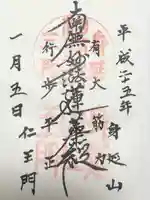 平成廿五年
身延山
有大筋力
南無妙法蓮華経
行歩平正
一月五日
仁王門